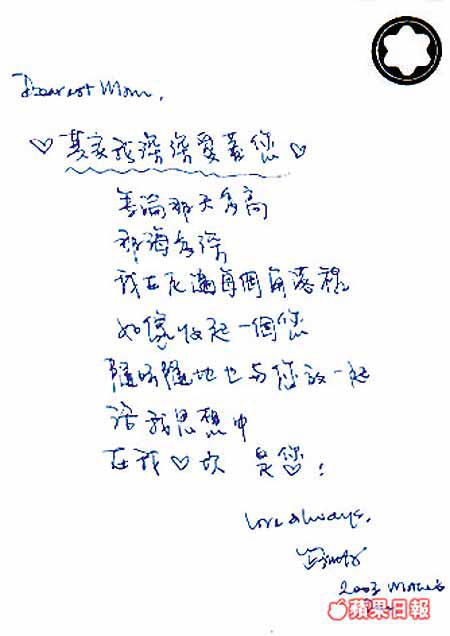 Dearest Mom,
♡ 其實我深深愛著您 ♡
無論那天多高
那海多深
我在尺遍每個角落裡
如像收起一個您
隨時隨地也與您放一起
活我思想中
在我♡坎 是您♡!
Love always,
2003
蘋果日報